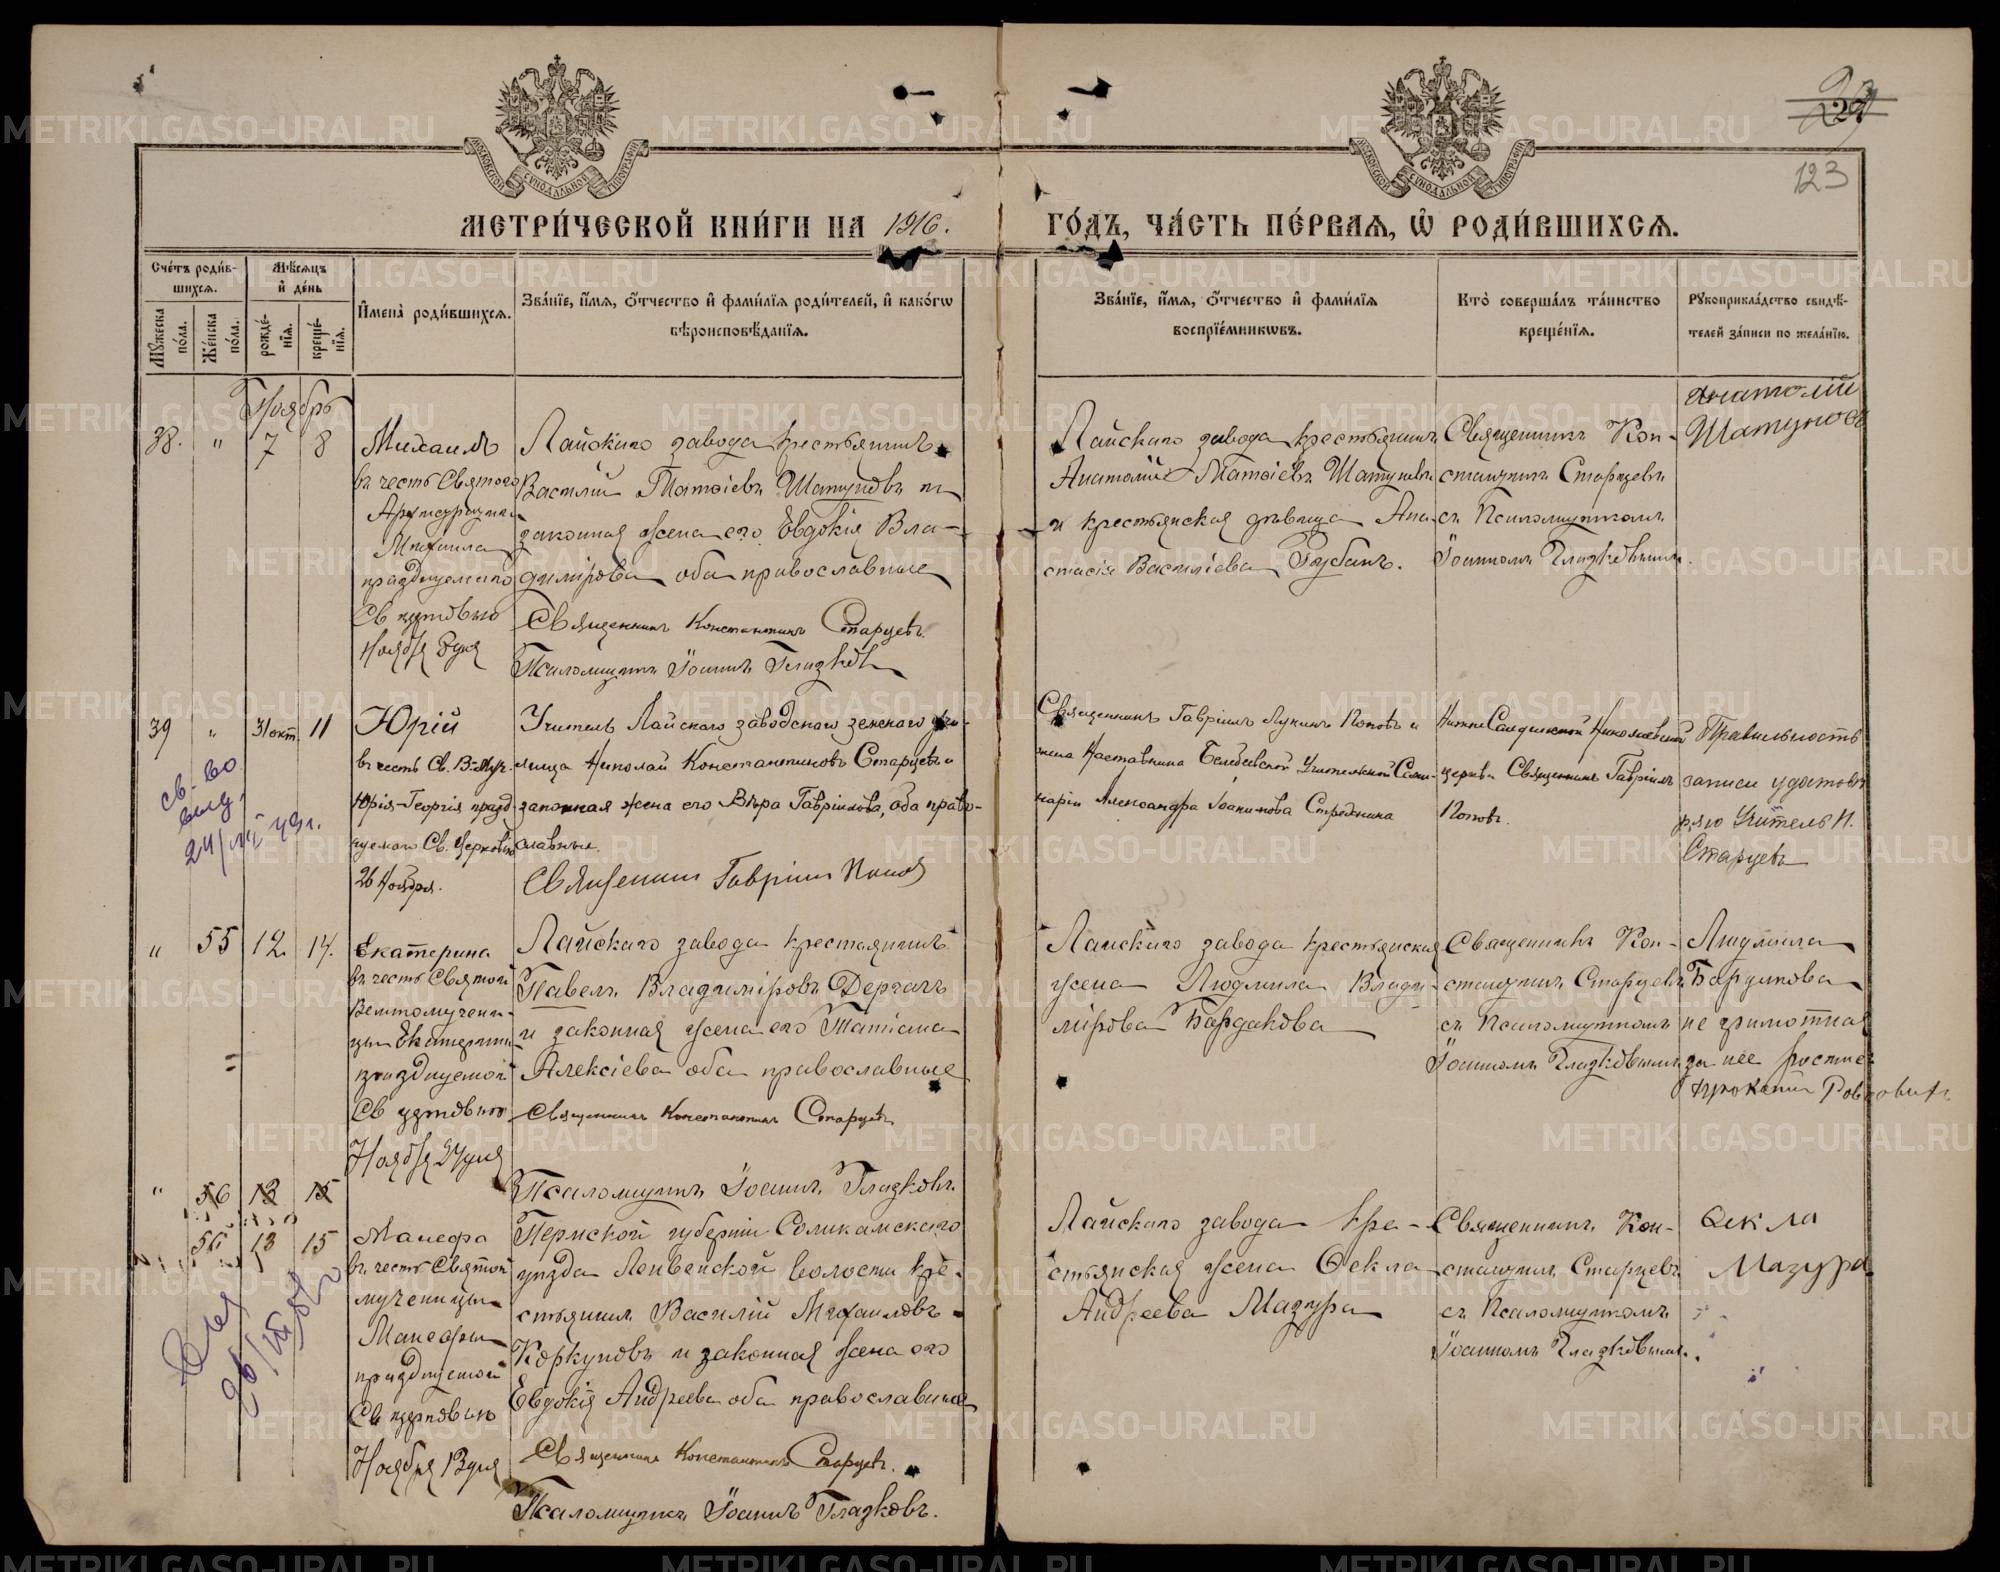 МЕТРИ́ЧЕСКОЙ КНИ́ГИ НА 1916.
ГО́ДЪ, ЧА́СТЬ ПЕ́РВАЯ, Ѡ҆ РОДИ́ВШИХСЯ.
123
Сче́тъ роди́в-
шихся.
Мѣ́сяцъ
и҆ де́нь
Мꙋ́жеска по́ла.
Же́нска по́ла.
рожде́-
нїѧ.
креще́-
нїѧ.
И҆мена̀ роди́вшихсѧ.
Зва́нїе, и҆́мѧ, ѻ҆́тчество и҆ фами́лїѧ роди́телей, и҆ како́гѡ
вѣроисповѣ́данїѧ.
Зва́нїе, и҆́мѧ, ѻ҆́тчество и҆ фами́лїѧ
воспрїе́мникѡвъ.
Кто̀ соверша́лъ та́инство
креще́нїѧ.
Рꙋкоприкла́дство свидѣ́-
телей за́писи по жела́нїю.
Ноябрь
38. " 7 8
Михаилъ
въ честь Святого
Архистратига
Михаила
празднуемаго
Св церковью
Ноября 8 дня
Лайскаго завода крестьянинъ
Василій Матѳіевъ Шатуновъ и
законная жена его Евдокія Вла-
димірова оба православные
Священникъ Константинъ Старцевъ.
Псаломщикъ Іоаннъ Гладковъ
Лайскаго завода крестьянинъ
Анатолій Матѳіевъ Шатуновъ
и крестьянская дѣвица Ана-
стасія Василіева Рубанъ.
Священникъ Кон-
стантинъ Старцевъ
съ Псаломщикомъ
Іоанномъ Гладковымъ.
Анатолій
Шатуновъ
39 " 31 окт. 11
Св-во
выд.
Юрій
въ честь Св. В-Муч.
Юрія-Георгія празд-
нуемаго Св. Церковью
26 Ноября.
Учитель Лайскаго заводскаго земскаго учи-
лища Николай Константиновъ Старцевъ и
законная жена его Вѣра Гавріилова, оба право-
славные.
Священникъ Гавріилъ Поповъ
Священникъ Гавріилъ Лукинъ Поповъ и
жена Наставника Белебеевской Учительской Семи-
наріи Александра Іоакимова Стрежнина
Нижне Салдинской Николаевской
церкви Священникъ Гавріилъ
Поповъ.
Правильность
записи удостовѣ
ряю Учитель Н.
Старцевъ
" 55 12 14.
Екатерина
въ честь Святой
Великомучени-
цы Екатерины
празднуемой
Св церковью
Ноября 24 дня
Лайскаго завода крестьянинъ
Павелъ Владиміровъ Дергачъ
и законная жена его Татіана
Алексіева оба православные
Священникъ Константинъ Старцевъ
Псаломщикъ Іоаннъ Гладковъ.
Лайскаго завода крестьянская
жена Людмила Влади-
мірова Бардакова
Священникъ Кон-
стантинъ Старцевъ
съ Псаломщикомъ
Іоанномъ Гладковымъ
Людмила
Бардакова
не грамотная
за нее
" 56 13 15
56 13 15
Манефа
въ честь Святой
мученицы
Манефы
празднуемой
Св церковью
Ноября 13 дня
Пермской губерніи Соликамскаго
уѣзда Ленвенской волости кре-
стьянинъ Василій Михаиловъ
Коркуновъ и законная жена его
Евдокія Андреева оба православные
Священникъ Константинъ Старцевъ.
Псаломщикъ Іоаннъ Гладковъ.
Лайскаго завода кре-
стьянская жена Ѳекла
Андреева Мазура
Священникъ Кон-
стантинъ Старцевъ
съ Псаломщикомъ
Іоанномъ Гладковымъ.
Ѳекла
Мазура
METRIKI.GASO-URAL.RU